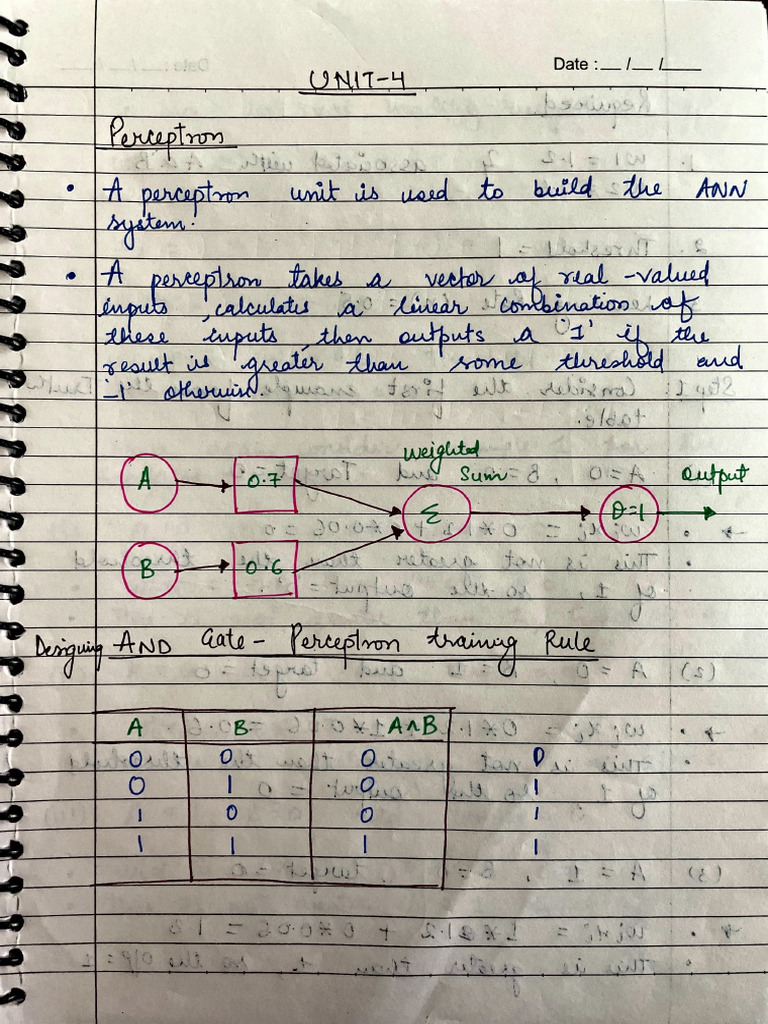 Date : __ / __ / ____
UNIT-4
Perceptron
• A perceptron unit is used to build the ANN
system.
• A perceptron takes a vector of real-valued
inputs, calculates a linear combination of
these inputs, then outputs a '1' if the
result is greater than some threshold and
'-1' otherwise.
Weighted
Sum
Output
A 0.7 Σ θ=1
B 0.6
Designing AND Gate - Perceptron training Rule
A B A∧B
0 0 0 0
0 1 0 1
1 0 0 1
1 1 1 1